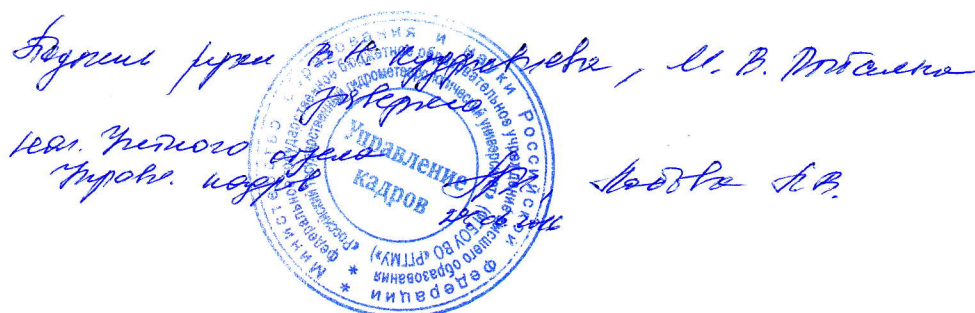 Подпись руки В.Н. Кудрявцева, М.В.
заверяю
нач. Учетного отдела
Управл. кадров
Министерство образования и науки Российской Федерации
Федеральное государственное бюджетное образовательное учреждение высшего образования
«Российский государственный гидрометеорологический университет» (ФГБОУ ВО «РГГМУ»)
Управление
кадров
2016